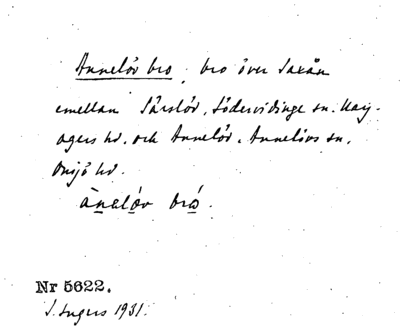 Annelöv bro, bro över Saxån
emellan Särslöv, Södervidinge sn. Harj-
agers hd. och Annelöv, Annelövs sn,
Onsjö hd.
ànalóv bró.
Nr 5622.
I. Ingers 1931.